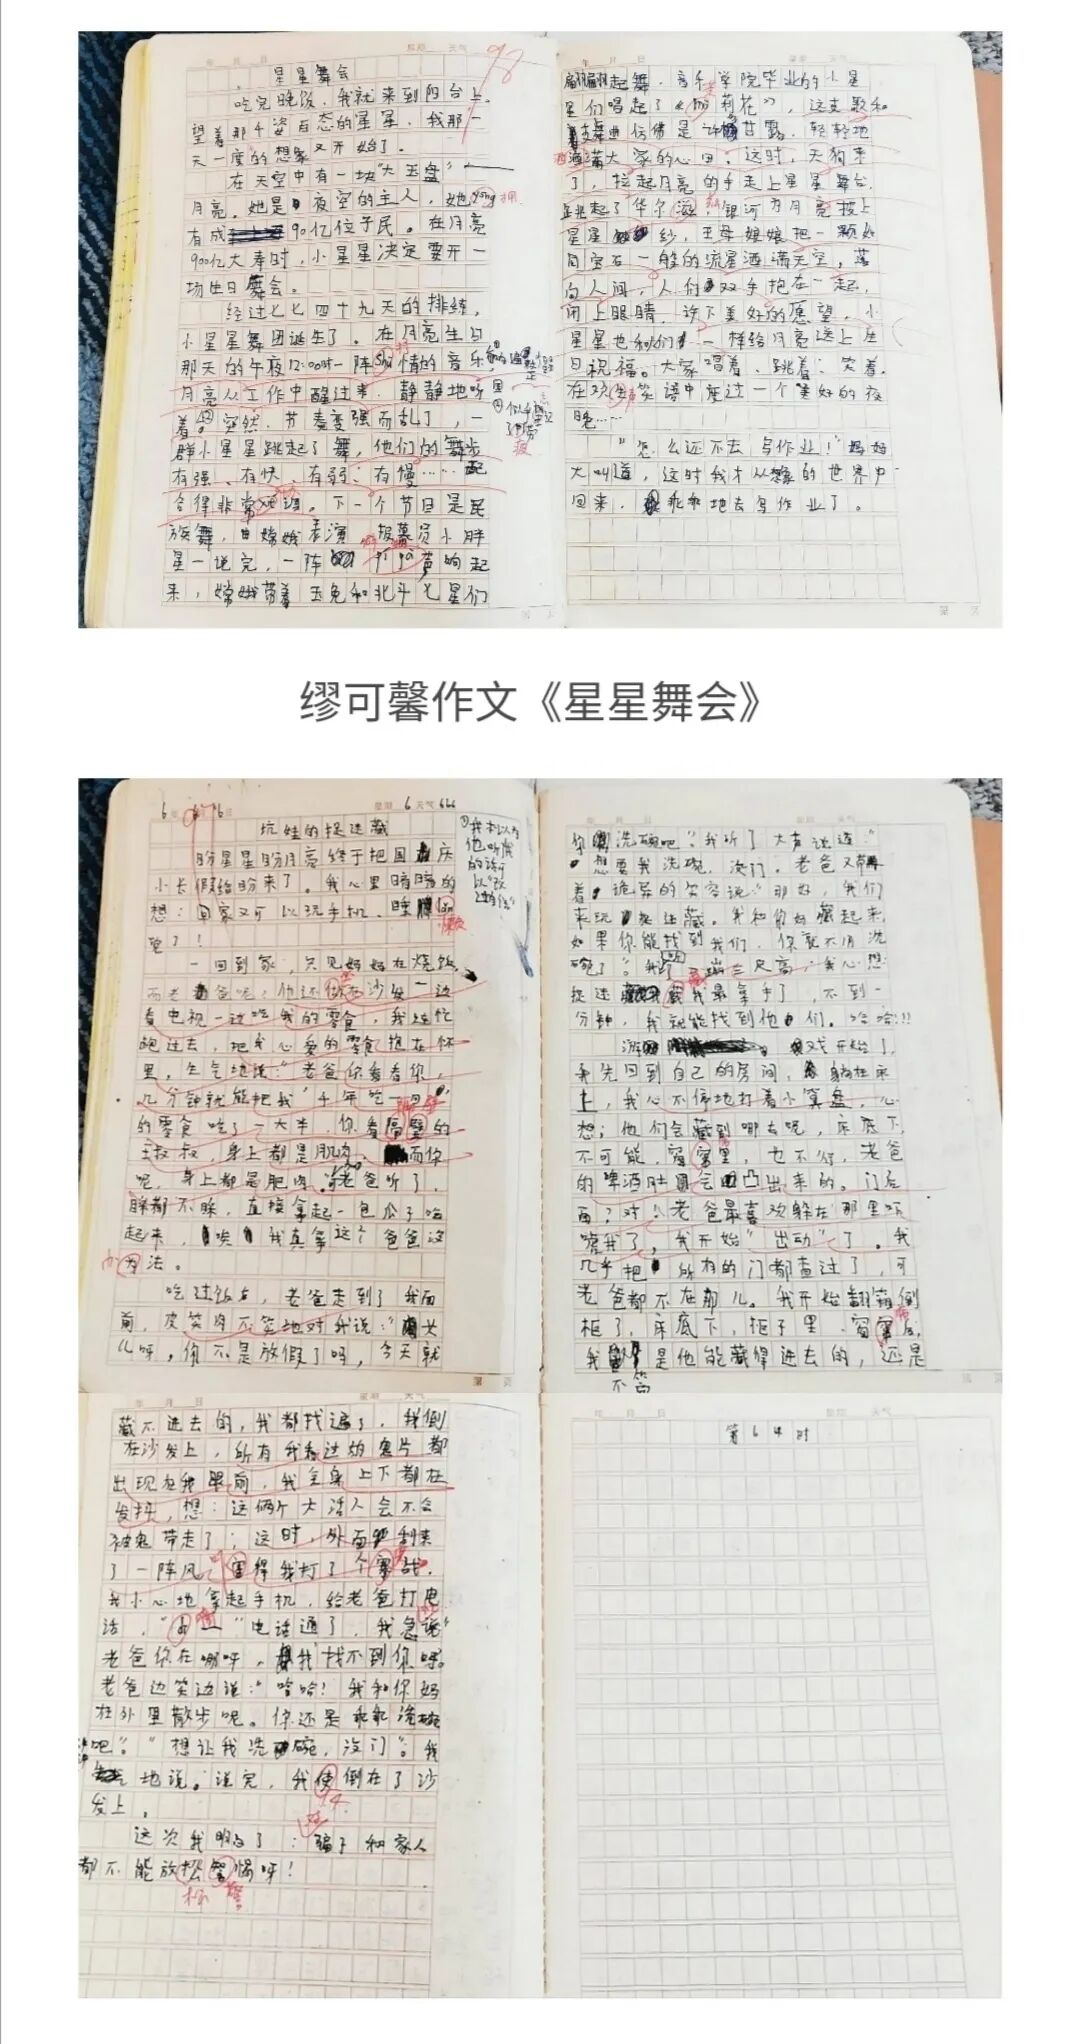 星星舞会
98
吃完晚饭，我就来到阳台上，
望着那千姿百态的星星，我那一
天一度的想象又开始了。
在天空中有一块"大玉盘"——
月亮。她是夜空的主人，她
有成 90亿位子民。在月亮
900亿大寿时，小星星决定要开一
场生日舞会。
经过七七四十九天的排练，
小星星舞团诞生了。在月亮生日
那天的午夜12:00时一阵 情的音乐，
月亮从工作中醒过来，静静地听
着。突然，节奏变强而乱了，一
群小星星跳起了舞，他们的舞步
有强、有快、有弱、有慢……配
合得非常 。下一个节目是民
族舞，由嫦娥表演，报幕员小胖
星一说完，一阵 声响起
来，嫦娥带着玉兔和北斗七星们
翩翩起舞，音乐学院毕业的小星
星们唱起了《茉莉花》，这支歌和
舞曲仿佛是 甘露，轻轻地
洒满大家的心田。这时，天狗来
了，拉起月亮的手走上星星舞台，
跳起了华尔滋，银河为月亮披上
星星 纱，王母娘娘把一颗如
同宝石一般的流星洒满天空，落
向人间，人们双手抱在一起，
闭上眼睛，许下美好的愿望，小
星星也和他们一样给月亮送上生
日祝福。大家唱着、跳着、笑着，
在欢声笑语中度过一个美好的夜
晚……
"怎么还不去写作业！"妈妈
大叫道，这时我才从想象的世界中
回来，乖乖地去写作业了。
缪可馨作文《星星舞会》
6年 6月6日 星期6 天气666
坑娃的捉迷藏
盼星星盼月亮终于把国庆
小长假给盼来了。我心里暗暗的
想：回家又可以玩手机、睡懒
觉了！
一回到家，只见妈妈在烧饭，
而老爸呢，他还 在沙发一边
看电视一边吃我的零食，我连忙
跑过去，把我心爱的零食抱在怀
里，生气地说："老爸你看看你，
几分钟就能把我"千年吃一回"
的零食吃了一大半，你看隔壁的
王叔叔，身上都是肌肉，而你
呢，身上都是肥肉。"老爸听了，
睬都不睬，直接拿起一包瓜子啃
起来，唉！我真拿这个爸爸没
办法。
吃过饭后，老爸走到了我面
前，皮笑肉不笑地对我说："女
儿呀，你不是放假了吗，今天就
我本以为
他听我
的话可
以"改
你洗碗吧"。我听了大声说道："
想要我洗碗，没门。老爸又带
着诡异的笑容说："那好，我们
来玩捉迷藏。我和你妈藏起来，
如果你能找到我们，你就不用洗
碗了"。我 三尺高，我心想：
捉迷藏我最拿手了，不到一
分钟，我就能找到他们。哈哈!!!
游戏开始了，
我先回到自己的房间，躺在床
上，我心不停地打着小算盘，心
想：他们会藏到哪去呢，床底下，
不可能，窗帘里，也不行，老爸
的啤酒肚会凸出来的。门后
面？对！老爸最喜欢躲在那里吓
唬我了，我开始"出动"了。我
几乎把所有的门都查过了，可
老爸都不在那儿。我开始翻箱倒
柜了，床底下，柜子里、窗帘后，
我不管是他能藏得进去的，还是
藏不进去的，我都找遍了，我倒
在沙发上，所有我看过的鬼片都
出现在我眼前，我全身上下都在
发抖，想：这俩个大活人会不会
被鬼带走了；这时，外面刮来
了一阵风，害得我打了个寒战，
我小心地拿起手机，给老爸打电
话，" "电话通了，我急说"
老爸你在哪呀，我找不到你呀。
老爸边笑边说："哈哈！我和你妈
在外里散步呢。你还是乖乖洗碗
吧"。"想让我洗碗，没门"。我
地说。说完，我便倒在了沙
发上。
这次我明白了：骗子和家人
都不能放松警惕呀！
第64时